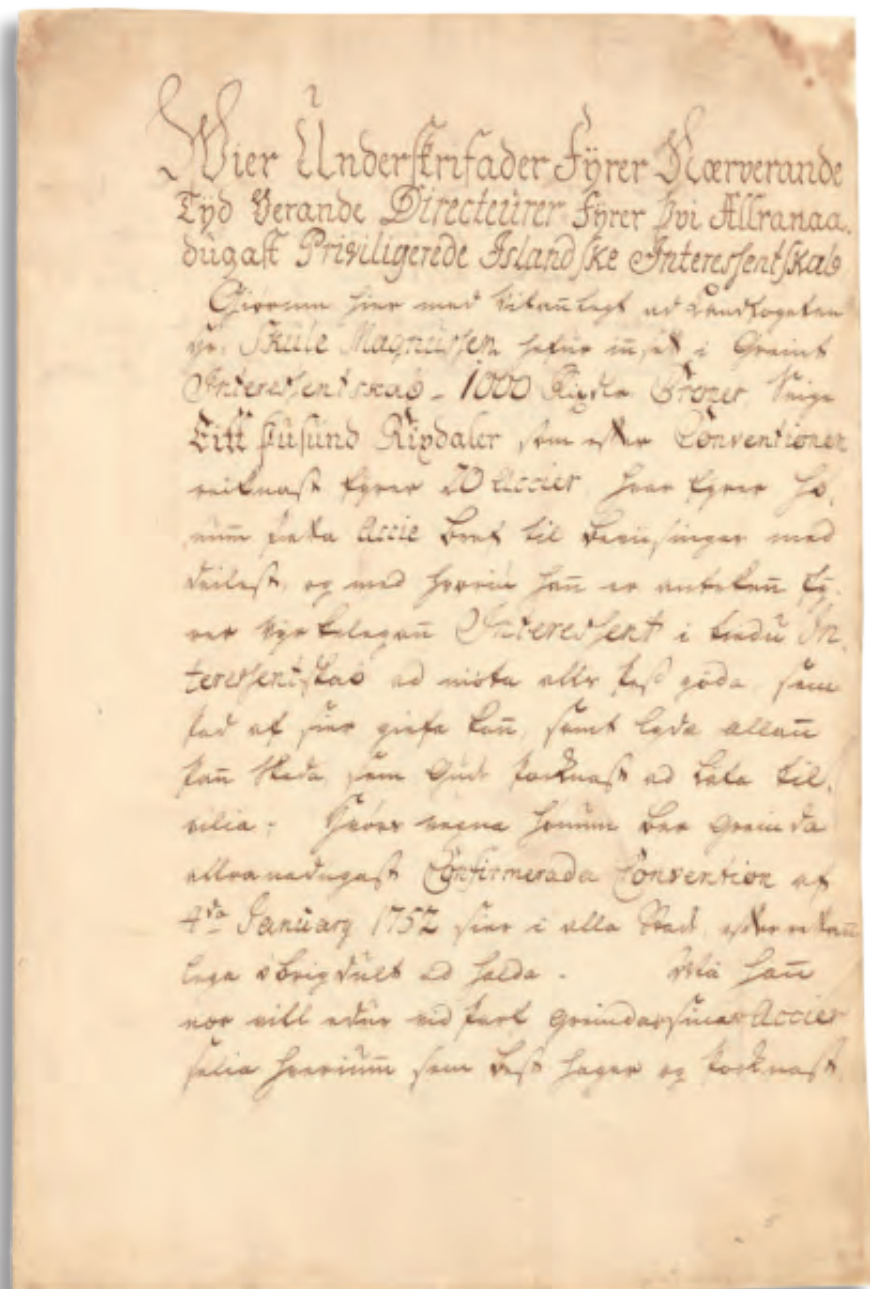 Wier Underskrifader Fyrer Nærverande
Tyd Verande Directeurer Fyrer Þvi Allranaa-
dugast Priviligerede Islandske Interessentskab
Giorum hier med vitanlegt ad Landfogeten
Hr. Skule Magnussen hefur innsett i Greint
Interessentskab - 1000 Rixdlr Croner, Seige
Eitt Þusund Rixdaler sem efter Conventionen
reiknast fyrer 20 Accier, hvar fyrer hö-
num þetta Accie Bref til Bevisingar med
deilest, og med hvoriu hann er anteken fy-
rer Interessent i tiedu In-
teressentskab ad niota alls þess goda, sem
þad af sier giefa kann, samt lyda allann
þann Skada, sem Gud þocknast ad lata til-
vilia: hönum ber greinda
allranadugast Confirmerada Convention af
4da January 1752 sier i alla Stad,
lega obrigdult ad halda. Má hann
nær vill edur vid þarf greindar sinar Accier
selia hverium sem best hagar og þocknast